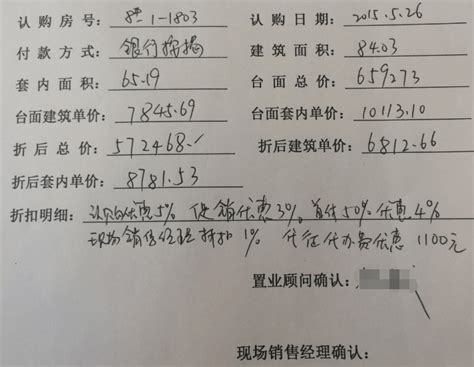 认购房号：8#1-1803 认购日期：2015.5.26
付款方式：银行按揭 建筑面积：84.03
套内面积：65.19 台面总价：659273
台面建筑单价：7845.69 台面套内单价：10113.10
折后总价：572468.- 折后建筑单价：6812.66
折后套内单价：8781.53
折扣明细：认购优惠5% 促销优惠3% 首付50%优惠4%
现场销售经理折扣1% 代征代办费优惠1100元
置业顾问确认：
现场销售经理确认：